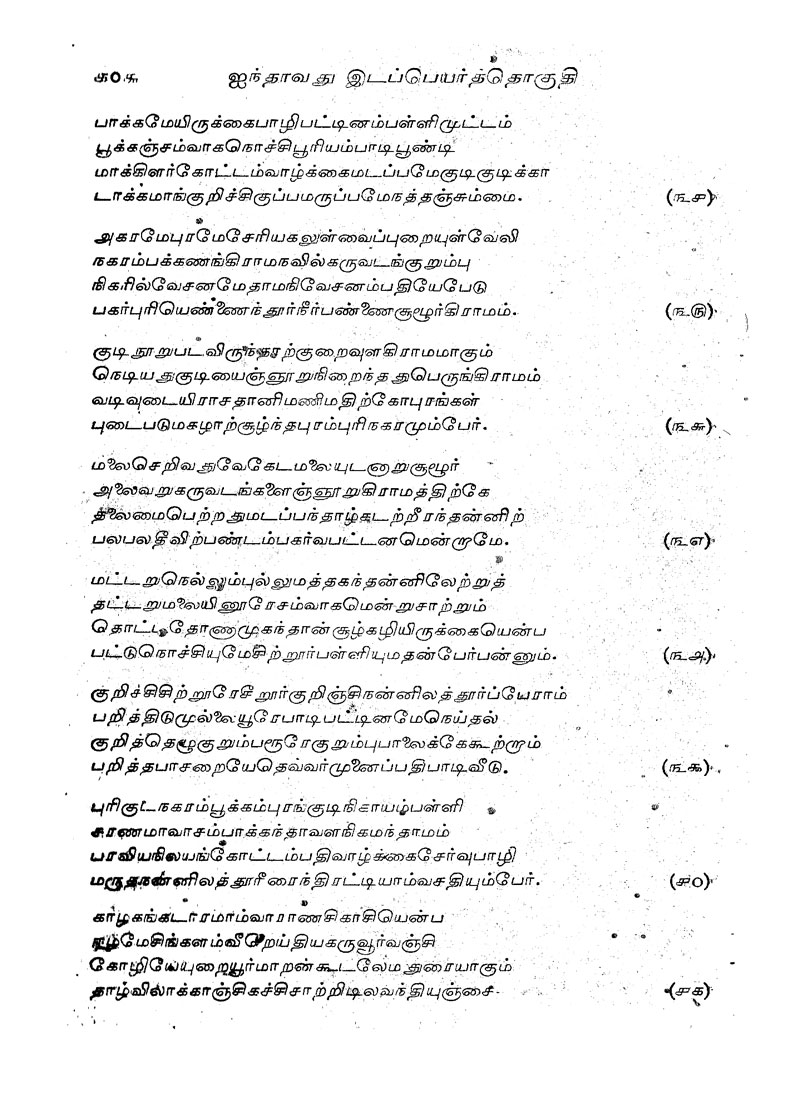 ௧௦௬ ஐந்தாவது இடப்பெயர்த்தொகுதி
பாக்கமேயிருக்கைபாழிபட்டினம்பள்ளிமுட்டம்
பூக்கஞ்சம்வாகநொச்சிபூரியம்பாடிபூண்டி
மாக்கிளர்கோட்டம்வாழ்க்கைமடப்பமேகுடிகுடிக்கா
டாக்கமாங்குறிச்சிகுப்பமருப்பமேநத்தஞ்சும்மை. (௩௪)
அகரமேபுரமேசேரியகலுள்வைப்புறையுள்வேலி
நகரம்பக்கணங்கிராமநவில்கருவடங்குறும்பு
நிகரில்வேசனமேதாமநிவேசனம்பதியேபேடு
பகர்புரியெண்ணைந்தூர்நீர்பண்ணைசூழூர்கிராமம். (௩௫)
குடிநூறுபடவிருந்ததற்குறைவுளகிராமமாகும்
நெடியதுகுடியைஞ்ஞூறுநிறைந்ததுபெருங்கிராமம்
வடிவுடையிராசதானிமணிமதிற்கோபுரங்கள்
புடைபடுமகழாற்சூழ்ந்தபுரம்புரிநகரமும்பேர். (௩௬)
மலைசெறிவதுவேகேடமலையுடனாறுசூழூர்
அலைவறுகருவடங்களைஞ்ஞூறுகிராமத்திற்கே
தலைமைபெற்றதுமடப்பந்தாழ்கடற்றீரந்தன்னிற்
பலபலதீவிற்பண்டம்பகர்வபட்டனமென்றாமே. (௩௭)
மட்டறுநெல்லும்புல்லுமத்தகந்தன்னிலேற்றுத்
தட்டறுமலையினூரேசம்வாகமென்றுசாற்றும்
தொட்டிதோணாமுகந்தான்சூழ்கழியிருக்கையென்ப
பட்டுநொச்சியுமேசிற்றூர்பள்ளியுமதன்பேர்பன்னும். (௩௮)
குறிச்சிசிற்றூரேசீறூர்குறிஞ்சிநன்னிலத்தூர்ப்யேராம்
பறித்திடுமுல்லையூரேபாடிபட்டினமேநெய்தல்
குறித்தெழுகுறும்பரூரேகுறும்புபாலைக்கேகூற்றாம்
பறித்தபாசறையேதெவ்வர்முனைப்பதிபாடிவீடு. (௩௯)
புரிகுடநகரம்பூக்கம்புரங்குடிநிகாயம்பள்ளி
சரணமாவாசம்பாக்கந்தாவளநிகமந்தாமம்
பரவியநிலயங்கோட்டம்பதிவாழ்க்கைசேர்வுபாழி
மருதநன்னிலத்தூரீரைந்திரட்டியாம்வசதியும்பேர். (௪௦)
கார்ழகங்கடாரமாம்வாராணசிகாசியென்ப
ஈழமேசிங்களம்வீறெய்தியகருவூர்வஞ்சி
கோழியேயுறையூர்மாறன்கூடலேமதுரையாகும்
தாழ்விலாக்காஞ்சிகச்சிசாற்றிடிலவந்தியுஞ்சை. (௪௧)